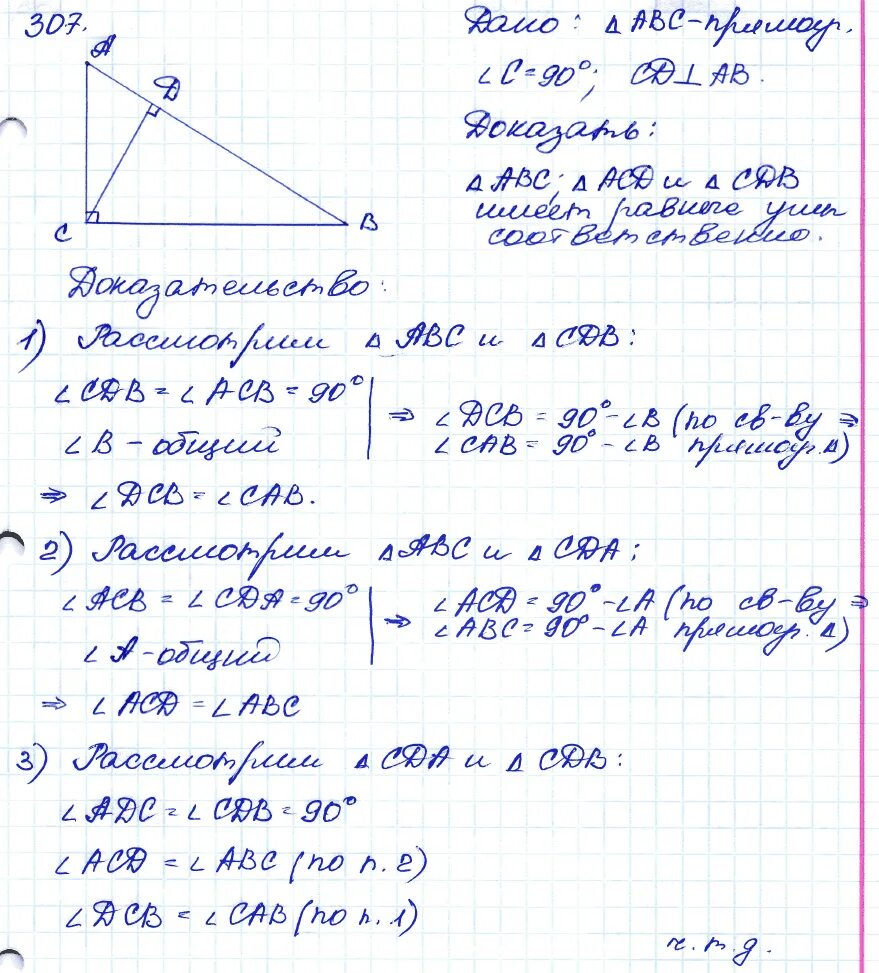 307.
Дано: △ ABC-прямоуг.
∠C=90°; CD⊥AB.
Доказать:
△ ABC; △ ACD и △ CDB
имеет равные углы
соответственно.
A
D
C
B
Доказательство:
1) Рассмотрим △ ABC и △ CDB:
∠CDB = ∠ACB = 90°
∠B - общий
⇒ ∠DCB = 90°-∠B (по св-ву ⇒
∠CAB = 90° - ∠B прямоуг.△)
⇒ ∠DCB = ∠CAB.
2) Рассмотрим △ABC и △CDA;
∠ACB = ∠CDA = 90°
∠A-общий
⇒ ∠ACD = 90°-∠A (по св-ву ⇒
∠ABC = 90°-∠A прямоуг.△)
⇒ ∠ACD = ∠ABC
3) Рассмотрим △CDA и △CDB:
∠ADC = ∠CDB = 90°
∠ACD = ∠ABC (по п. 2)
∠DCB = ∠CAB (по п. 1)
ч.т.д.